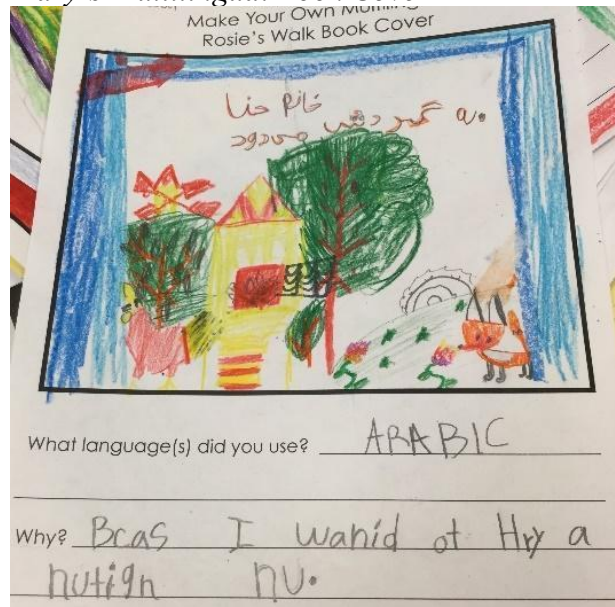 Make Your Own
Rosie's Walk Book Cover
خانم حنا
به گردش میرود
What language(s) did you use? ARABIC
Why? Bcas I wanid ot Hry a
nutign nu.